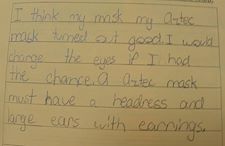 I think my mask my Aztec
mask turned out good. I would
change the eyes if I had
the chance. A aztec mask
must have a headress and
large ears with earrings.